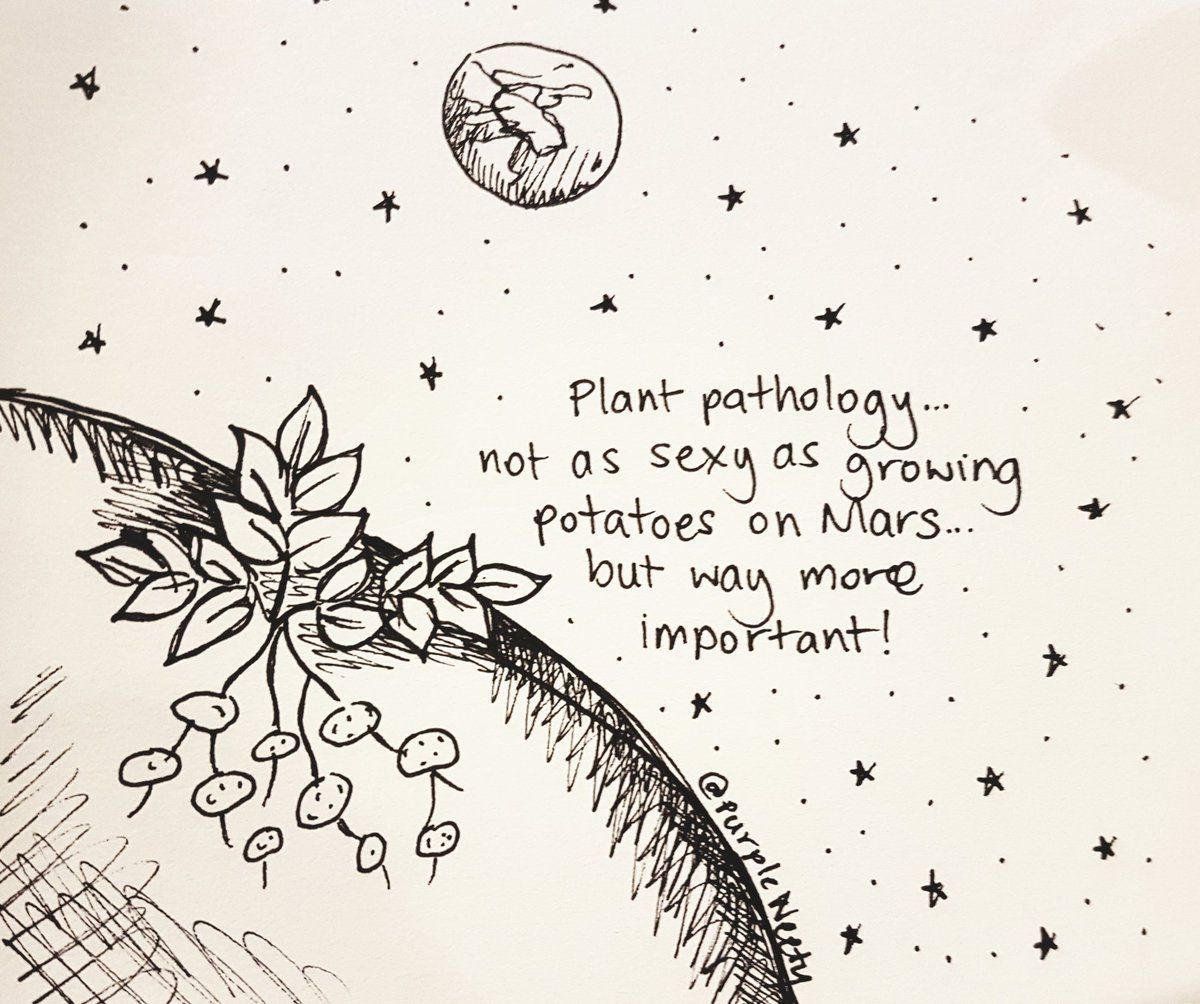 Plant pathology...
not as sexy as growing
potatoes on Mars...
but way more
important!
@PurpleNeety